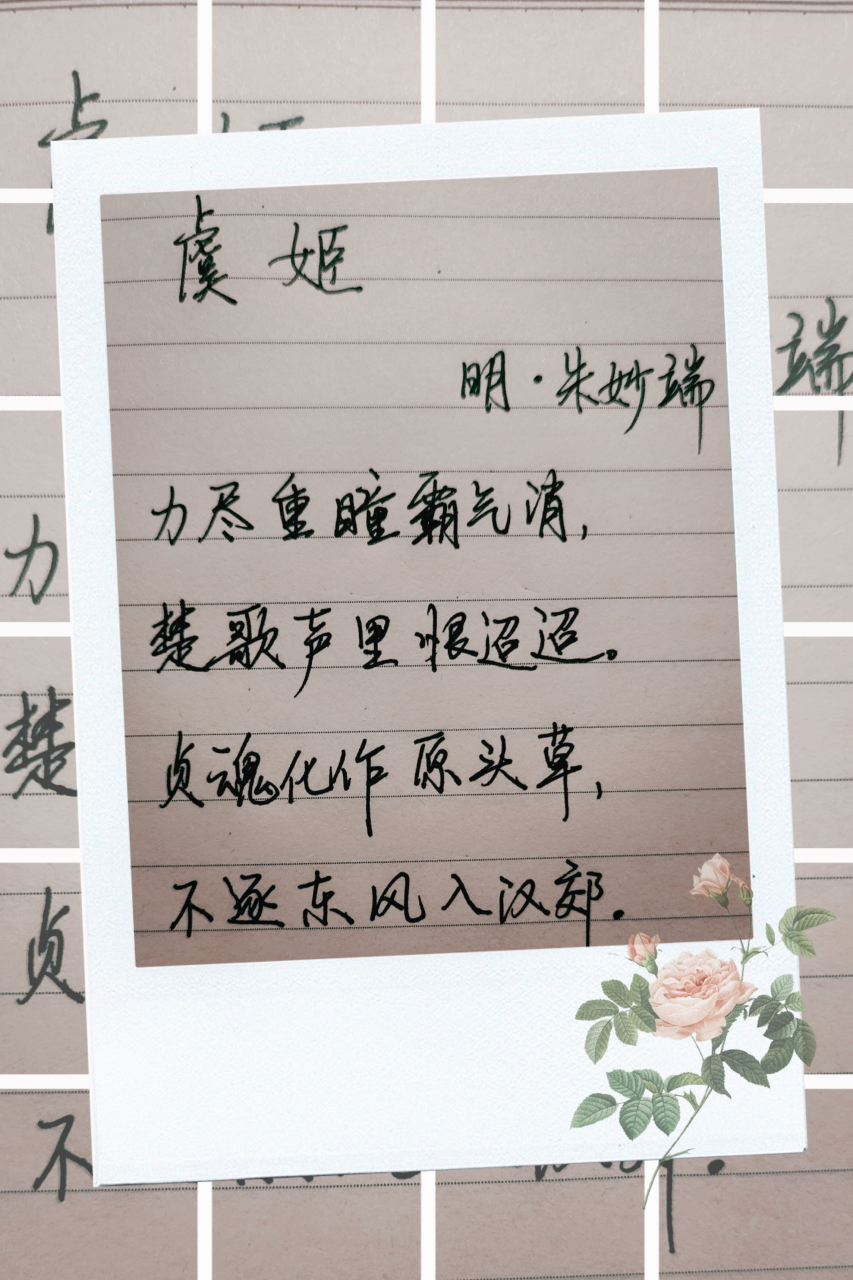 虞姬
明·朱妙端
力尽重瞳霸气消,
楚歌声里恨迢迢。
贞魂化作原头草,
不逐东风入汉郊.